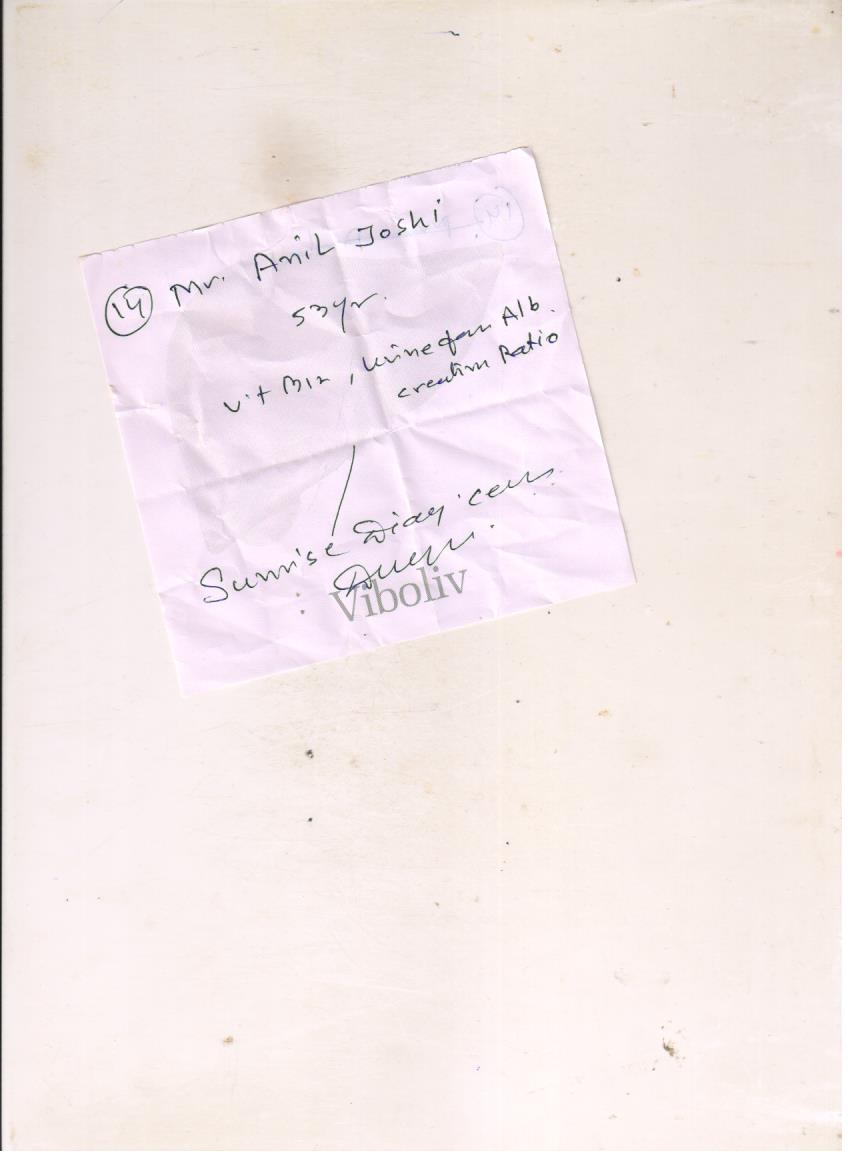 14 Mr. Anil Joshi
53yr.
Vit B12, Urine for Alb.
creatinn Ratio
Sunrise Diag. cen
Viboliv